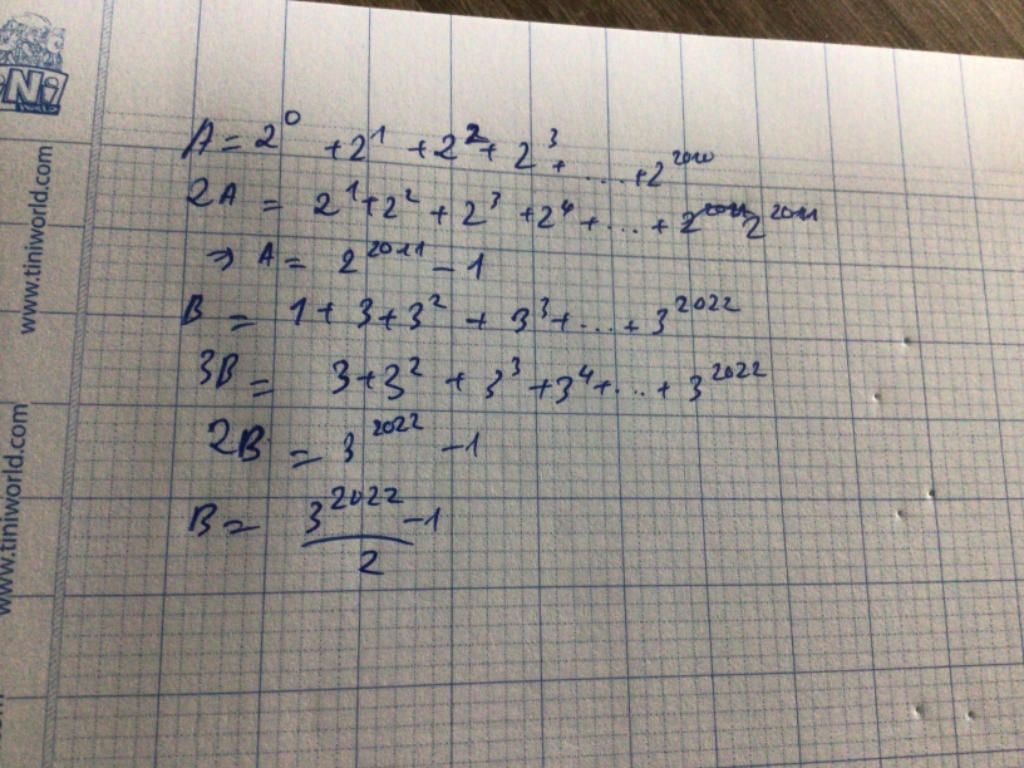 TiNi
WORLD
www.tiniworld.com
www.tiniworld.com
A = 2^0 + 2^1 + 2^2 + 2^3 + .... + 2^2010
2A = 2^1 + 2^2 + 2^3 + 2^4 + ... + 2^2011
⇒ A = 2^2011 - 1
B = 1 + 3 + 3^2 + 3^3 + ... + 3^2022
3B = 3 + 3^2 + 3^3 + 3^4 + ... + 3^2022
2B = 3^2022 - 1
B = (3^2022 - 1) / 2